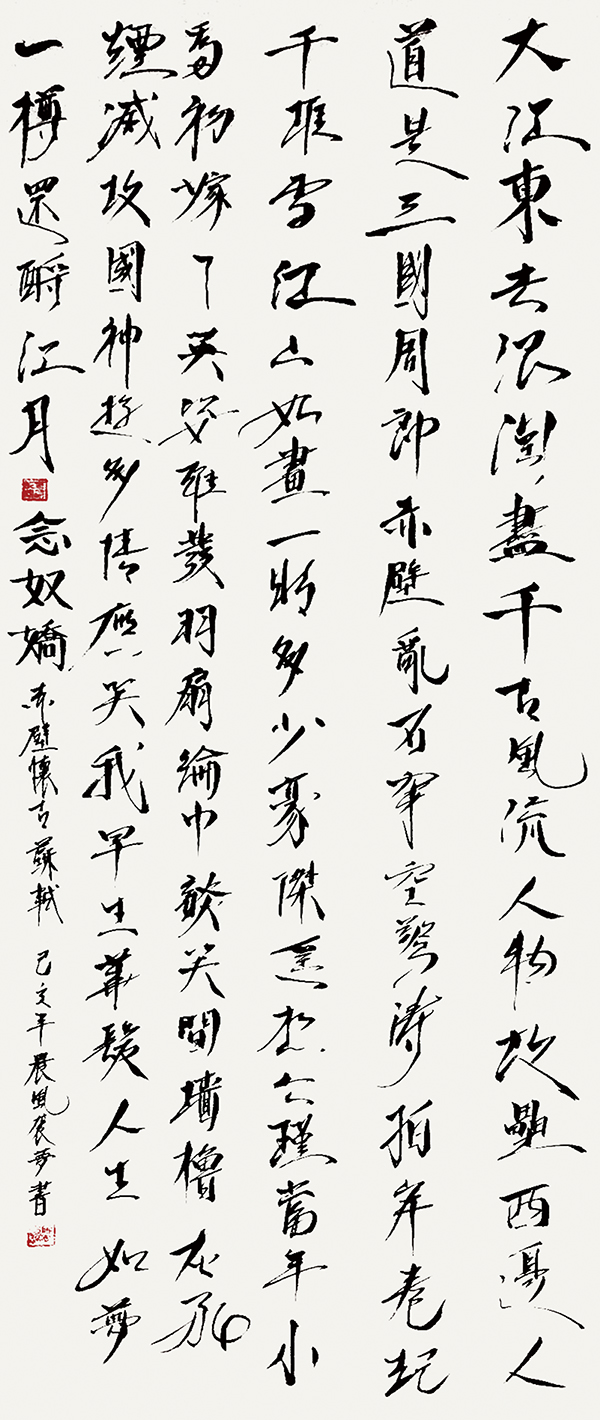 大江東去浪淘盡千古風流人物故壘西邊人
道是三國周郎赤壁亂石穿空驚濤拍岸卷起
千堆雪江山如畫一時多少豪傑遙想公瑾當年小
喬初嫁了英姿雄發羽扇綸巾談笑間墻櫓灰飛
煙滅故國神遊多情應笑我早生華髮人生如夢
一樽還酹江月 念奴嬌 赤壁懷古蘇軾 己亥年晨風夢書